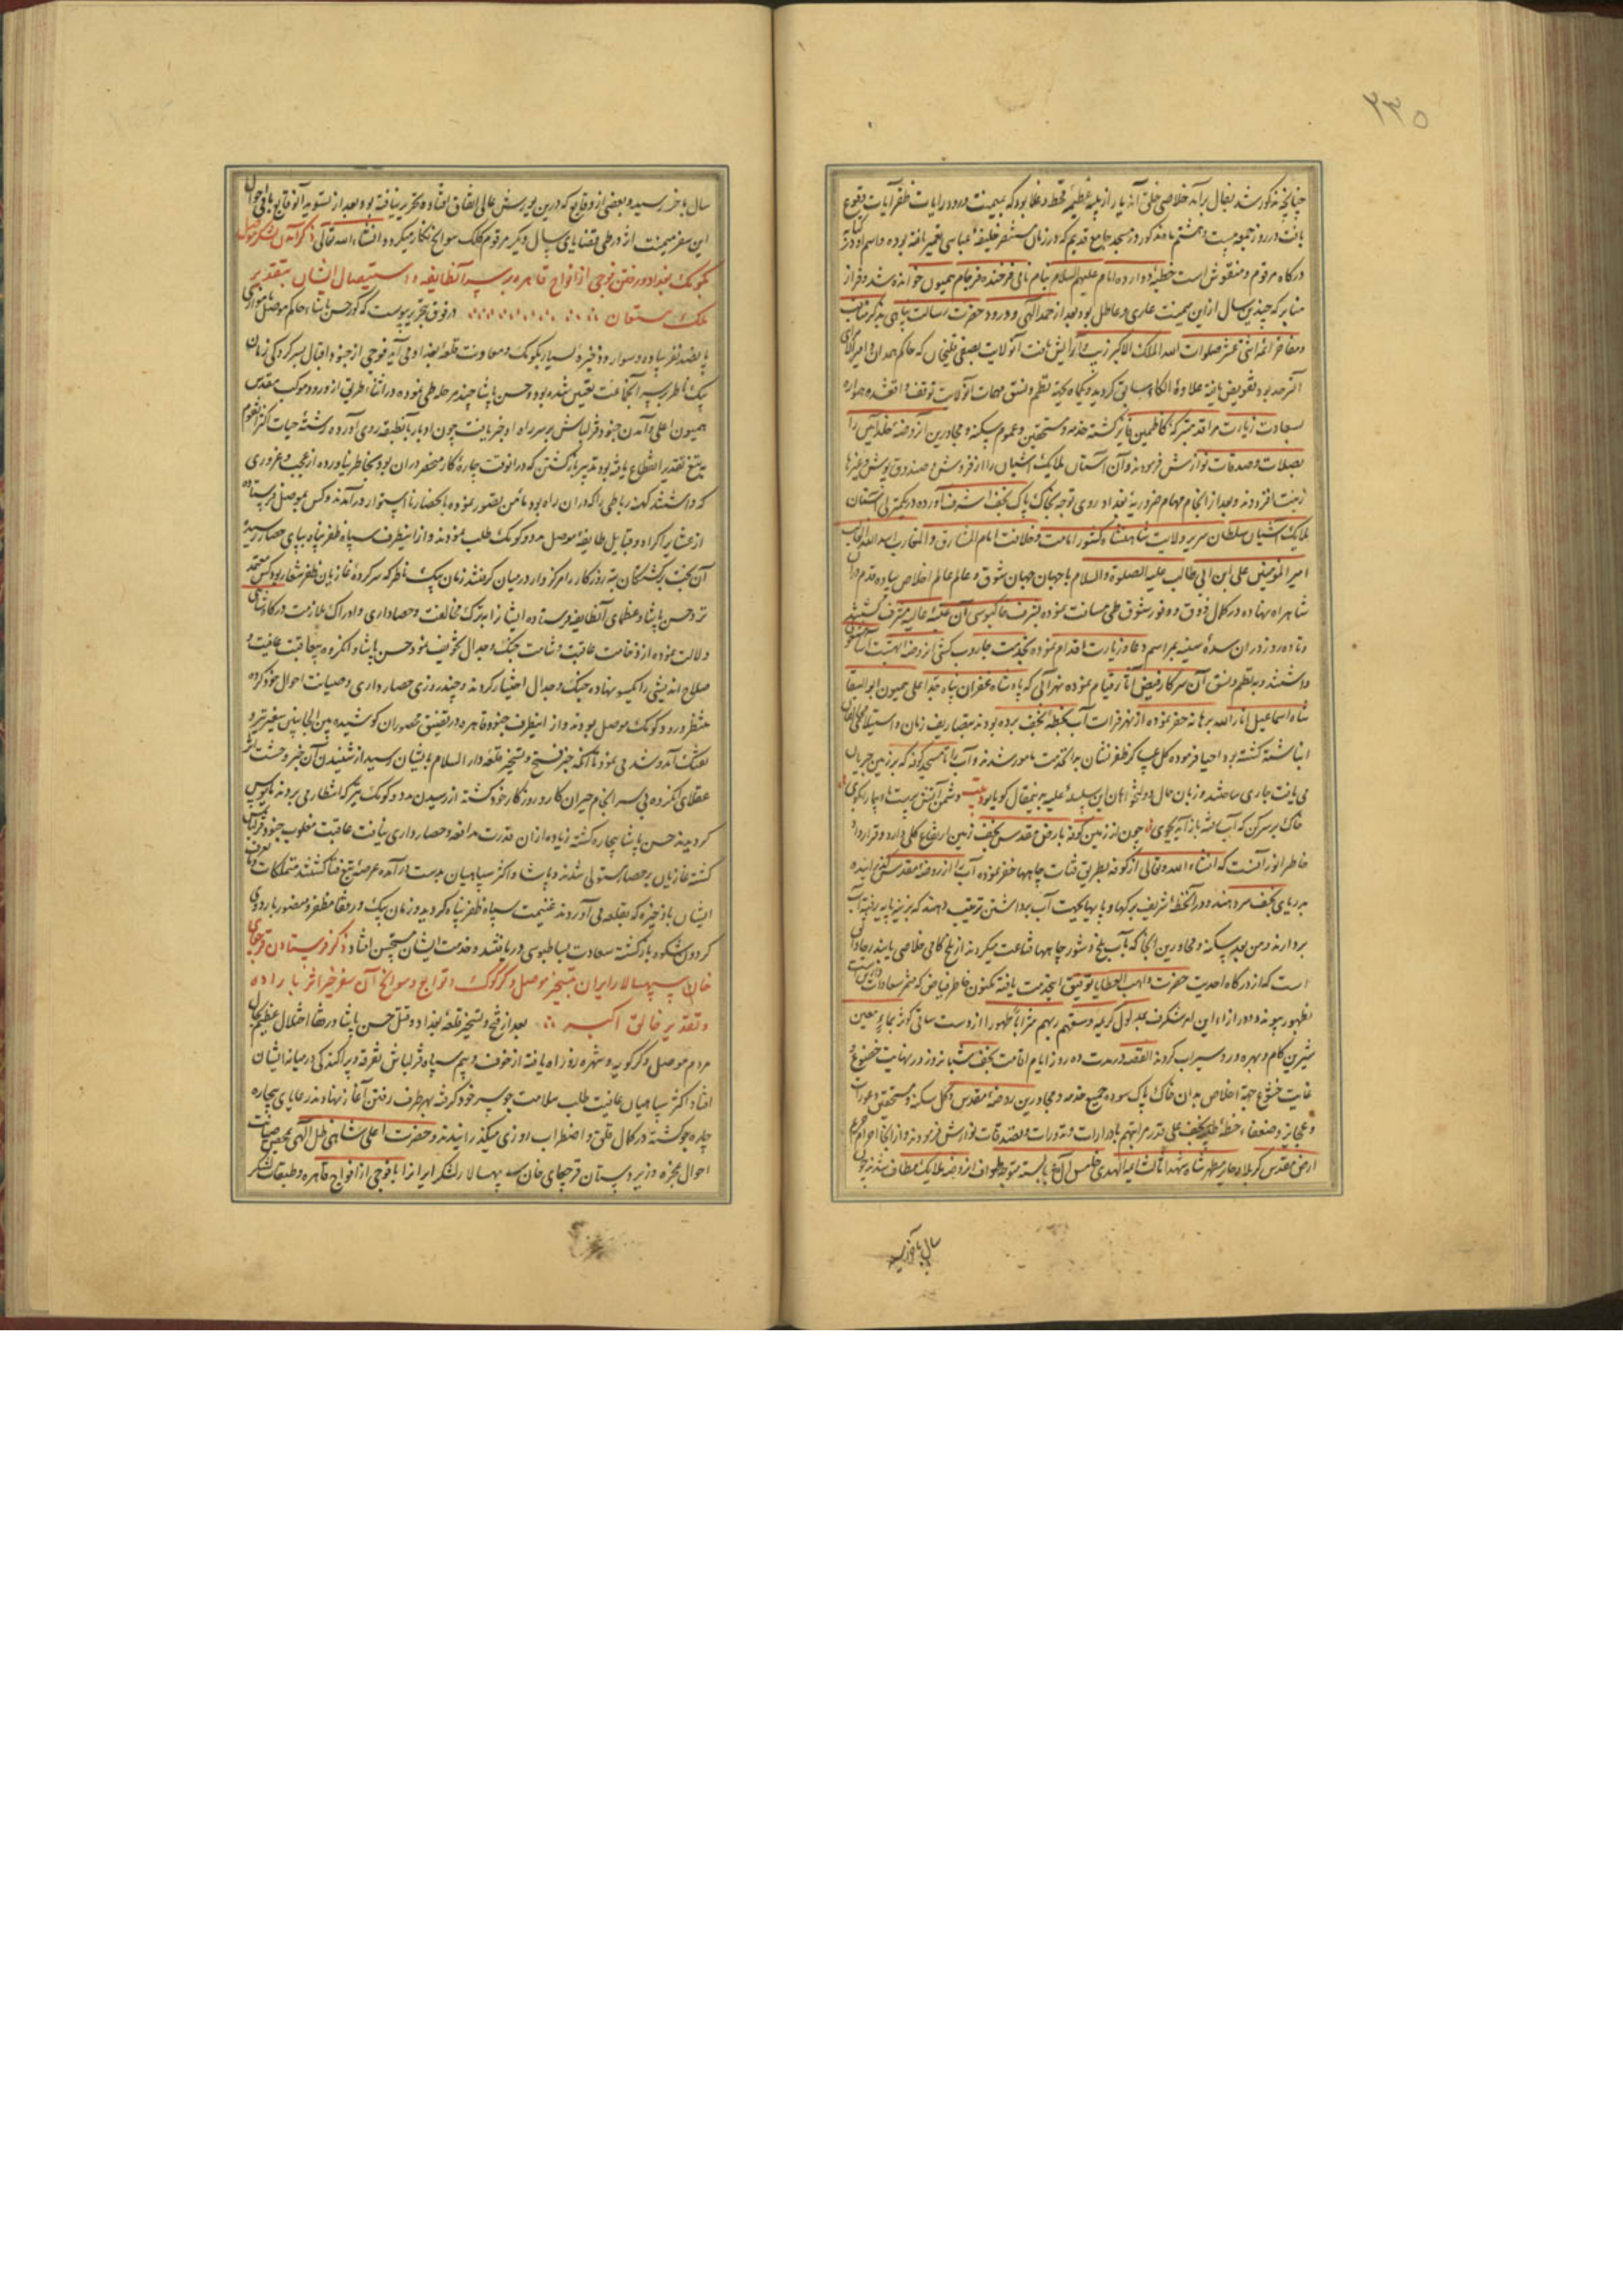 ۲۳۵
چنانچه مذکور شد بفال برآمد خلاصی خلق آن دیار از بلیهٔ عظیمهٔ قحط و غلا بود که بمیمنت ورود رایات ظفر آیات وقوع
یافت در روز جمعه بیست و هشتم ماه مذکور در مسجد جامع قدیم که در زمان مستنصر خلیفهٔ عباسی تعمیر یافته بوده و اسم او در
درگاه مرقوم و منقوش است خطبهٔ دوازده امام علیهم السلام بنام نامی فرخنده فرجام همیون خوانده شد و فراز
منابر که چندین سال ازین میمنت عاری و عاطل بود بعد از حمد الهی و درود حضرت رسالت پناهی بذکر مناقب
و مفاخر ائمهٔ اثنی عشر صلوات الله الملک الاکبر زیب و آرایش یافت و ایالت بصفی قلیخان که حاکم همدان و امیرالامرای
آن سرحد بود تفویض یافته علاوهٔ الکاء سابق گردید و یکماه بجهة نظم و نسق مهمات آن ولایت توقف واقع شد و همواره
بسعادت زیارت مراقد متبرکهٔ کاظمین فایز گشته خدمه و مستحقین و عموم سکنه و مجاورین آن روضهٔ خلد آیین را
بصلات و صدقات نوازش فرمودند و آن آستان ملایک آشیان را از فروش و صندوق پوش و غیرها
زینت افزودند و بعد از انجام مهام ضروریهٔ بغداد روی توجه بخاک پاک نجف اشرف آورده در یکمنزلی آستان
ملایک آشیان سلطان سریر ولایت شاهنشاه کشور امامت و خلافت امام المشارق و المغارب اسد الله الغالب
امیر المؤمنین علی ابن ابی طالب علیه الصلوة و السلام با جهان جهان شوق و عالم عالم اخلاص پیاده قدم در آن
شاهراه نهاده در کمال ذوق و وفور شوق طی مسافت نموده بشرف خاکبوسی آن عتبهٔ عالیه مشرف گشتند
و تا ده روز در آن سدهٔ سنیه بمراسم دعا و زیارت اقدام نموده بخدمت جاروب کشی آن روضهٔ
داشتند و بنظم و نسق آن سرکار فیض آثار قیام نموده نهر آبی که پادشاه غفران پناه جد اعلی همیون ابوالبقا
شاه اسماعیل انار الله برهانه حفر نموده از نهر فرات آب بخطهٔ نجف برده بودند بتصاریف زمان
انباشته گشته بود احیا فرموده کل سپاه ظفر نشان بدان خدمت مامور شدند و آب را تا مسجد کوفه که بر زمین جریان
می یافت جاری ساختند و زبان حال دولتخواهان این سلسلهٔ علیه بدین مقال گویا بود بیت دشمن آتش پرست بادپیما را بگوی
خاک بر سر کن که آب رفته باز آید بجوی چون از زمین کوفه تا ارض مقدس نجف زمین ارتفاع کلی دارد و قرارداد
خاطر انور آنست که انشاء الله تعالی از کوفه بطریق قنات چاهها حفر نموده آب را از روضهٔ مقدس گذرانیده
بدریای نجف سر دهند و در آن خطهٔ شریف برکها و پایها بجهت آب برداشتن ترتیب دهند که بزینه پایه رفته آب
بردارند و من بعد سکنه و مجاورین آنجا که بآب تلخ و شور چاهها قناعت میکردند از تلخ کامی خلاصی یابند
است که از درگاه احدیت حضرت واهب العطایا توفیق این خدمت یافته مکنون خاطر فیاض که مثمر سعادات
بظهور پیوندد و در ازاء این امر شگرف بمدلول کریمهٔ و سقیهم ربهم شرابا طهورا از دست ساقی کوثر بماء معین
شیرین کام و بهره ور و سیراب گردند القصه در مدت ده روز ایام اقامت نجف شبانه روز در نهایت خضوع و
غایت خشوع جبههٔ اخلاص بدان خاک پاک سوده جمیع خدمه و مجاورین روضهٔ مقدس و کل سکنه و مستحقین و عورات
و عجایز و ضعفاء خطهٔ طیبهٔ نجف علی قدر مراتبهم بادرارات و نذورات و تصدقات نوازش فرمودند و از آنجا احرام
ارض مقدس کربلا و حایر مطهر شاه شهدا ثالث ائمة الهدی خامس آل عبا بسته متوجه طواف آن روضهٔ ملایک مطاف شدند چون
سال بآخر رسید
سال بآخر رسید و بعضی از وقایع که درین یورش عالی اتفاق افتاده تحریر نیافته بود بعد از تسوید آن وقایع باقی احوال
این سفر میمنت اثر در طی قضایای سال دیگر مرقوم کلک سوانح نگار میگردد انشاء الله تعالی ذکر آمدن لشکر موصل
بکومک بغداد و رفتن فوجی از افواج قاهره بر سر آن طایفه و استیصال ایشان بتقدیر
ملک مستعان در فوق بتحریر پیوست که کور حسن پاشاء حاکم موصل موازی
پانصد نفر پیاده و سوار و ذخیرهٔ بسیار بکومک و معاونت قلعهٔ بغداد می آید فوجی از جنود اقبال بسرکردگی زمان
بیک ناظر بر سر آن جماعت تعیین شده بود حسن پاشا چند مرحله طی نموده در اثناء طریق از ورود موکب مقدس
همیون اعلی و آمدن جنود قزلباش بر سر راه او خبر یافت چون ادبار بآن طبقه روی آورده رشتهٔ حیات اکثر آن قوم
بتیغ تقدیر انقطاع یافته بود تدبیر بازگشتن که در آن وقت چارهٔ کار منحصر در آن بود بخاطر نیاورده از عجب و غروری
که داشتند کهنه رباطی را که در آن راه بود مامن تصور نموده باحضار نا استوار درآمدند و کس بموصل فرستاده
از عشایر اکراد و قبایل طایفهٔ موصل مدد و کومک طلب نمودند و از اینطرف سپاه ظفر پناه بپای حصار رسیده
آن بخت برگشتگان تیره روزگار را مرکز وار در میان گرفتند زمان بیک ناظر که سرکردهٔ غازیان ظفر شعار بود کس معتمد
نزد حسن پاشا و عظمای آن طایفه فرستاده ایشان را بترک مخالفت و حصاداری و ادراک ملازمت درگاه شاهی
دلالت نموده از وخامت عاقبت و شامت جنگ و جدال تخویف نمود حسن پاشا و آن گروه بیعاقبت عافیت و
صلاح اندیشی را یکسو نهاده جنگ و جدال اختیار کردند و چند روزی حصارداری و صیانت احوال خود کرده
منتظر ورود کومک موصل بودند و از اینطرف جنود قاهره در تضییق محصوران کوشیده بین الجانبین سفیر تیر و
تفنگ آمد و شد می نمود تا آنکه خبر فتح و تسخیر قلعهٔ دارالسلام بایشان رسید از شنیدن آن خبر وحشت اثر
عقلای آن گروه بی سرانجام حیران کار و روزگار خود گشته از رسیدن مدد و کومک نیز که انتظار می بردند مایوس
گردیدند حسن پاشا بیچاره گشته زیاده از آن قدرت مدافعه و حصارداری نیافت عاقبت مغلوب جنود قزلباش
گشته غازیان بر حصار مستولی شدند و پاشا و اکثر سپاهیان بدست درآمده عرضهٔ تیغ فنا گشتند متملکات
ایشان با ذخیره که بقلعه می آوردند غنیمت سپاه ظفر پناه گردید و زمان بیک و رفقا مظفر و منصور باردوی
گردون شکوه بازگشته سعادت بساط بوسی دریافتند و خدمت ایشان مستحسن افتاد ذکر فرستادن قرچقای
خان سپهسالار ایران بتسخیر موصل و کرکوک و توابع و سوانح آن سفر خیر اثر باراده
و تقدیر خالق اکبر بعد از فتح و تسخیر قلعهٔ بغداد و قتل حسن پاشا و رفقا اختلال عظیم بحال
مردم موصل و کرکویه و شهره زور راه یافته از خوف و بیم سپاه قزلباش تفرقه و پراکندگی در میانهٔ ایشان
افتاد اکثر سپاهیان عافیت طلب سلامت جو سر خود گرفته بهر طرف رفتن آغاز نهادند رعایای بیچاره
چاره جو گشته در کمال قلق و اضطراب روزی میگذرانیدند و حضرت اعلی شاهی ظل الهی بمحض صیانت
احوال عجزه و زیردستان قرچقای خان سپهسالار لشکر ایران را با فوجی از افواج قاهره و طبقات لشکر